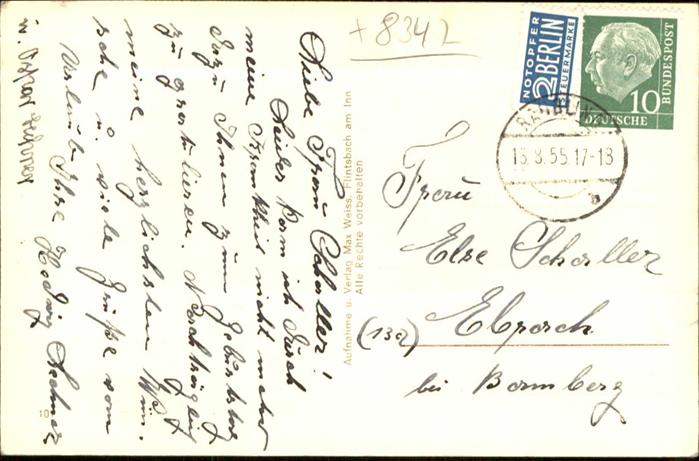 + 8342
Liebe Frau Schaller!
Leider kam ich durch
meine Krankheit nicht mehr
dazu Ihnen zum Geburtstag
zu gratulieren. Nachträglich
meine herzlichsten Wün-
sche u. viele Grüße vom
Urlaub Ihre Hedwig Lechner
u. Oskar Lechner
10
Aufnahme u. Verlag Max Weiss, Flintsbach am Inn
Alle Rechte vorbehalten
NOTOPFER
2 BERLIN
STEUERMARKE
10
DEUTSCHE
BUNDESPOST
13.8.55.17-18
b
Frau
Else Schaller
(13a) Ebrach
bei Bamberg